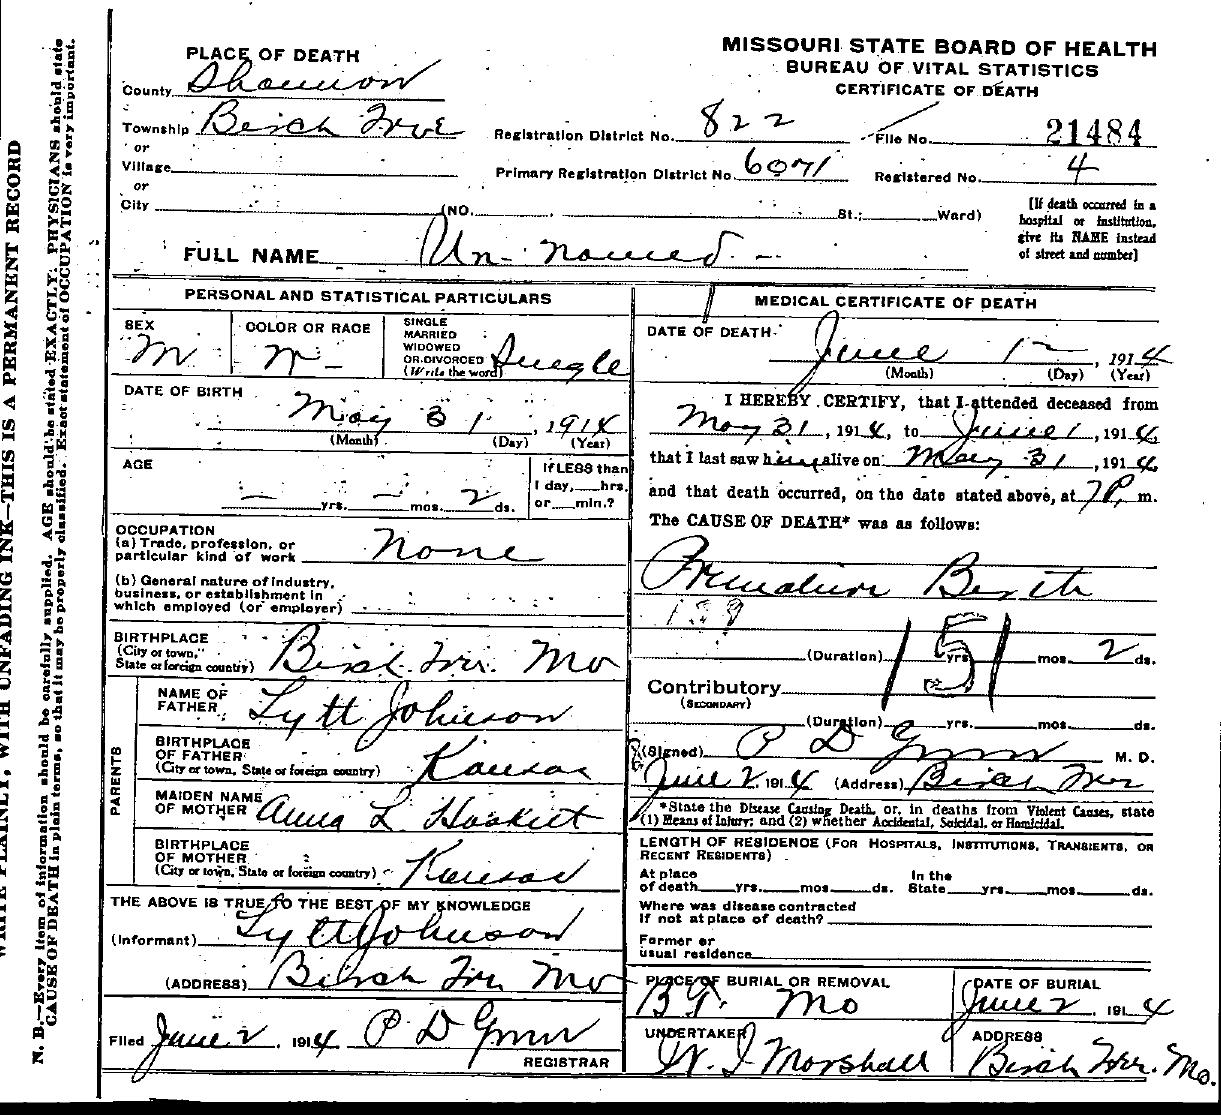 MISSOURI STATE BOARD OF HEALTH
BUREAU OF VITAL STATISTICS
CERTIFICATE OF DEATH
PLACE OF DEATH
County Shannon
Township Birch Tree
or
Village
or
City (NO. St.; Ward)
Registration District No. 822
File No. 21484
Primary Registration District No. 6071
Registered No. 4
[If death occurred in a
hospital or institution,
give its NAME instead
of street and number]
FULL NAME Un-named
PERSONAL AND STATISTICAL PARTICULARS
SEX
M
COLOR OR RACE
W
SINGLE
MARRIED
WIDOWED
OR DIVORCED
(Write the word) Single
DATE OF BIRTH
May 31, 1914
(Month) (Day) (Year)
AGE
— yrs. — mos. 2 ds.
If LESS than
1 day, hrs.
or min.?
OCCUPATION
(a) Trade, profession, or
particular kind of work None
(b) General nature of industry,
business, or establishment in
which employed (or employer)
BIRTHPLACE
(City or town,
State or foreign country) Birch Tree Mo
PARENTS
NAME OF
FATHER Lytt Johnson
BIRTHPLACE
OF FATHER
(City or town, State or foreign country) Kansas
MAIDEN NAME
OF MOTHER Anna L
BIRTHPLACE
OF MOTHER
(City or town, State or foreign country) Kansas
THE ABOVE IS TRUE TO THE BEST OF MY KNOWLEDGE
(Informant) Lytt Johnson
(ADDRESS) Birch Tree Mo
Filed June 2, 1914 P D
REGISTRAR
MEDICAL CERTIFICATE OF DEATH
DATE OF DEATH
June 1, 1914
(Month) (Day) (Year)
I HEREBY CERTIFY, that I attended deceased from
May 31, 1914, to June 1, 1914,
that I last saw him alive on May 31, 1914,
and that death occurred, on the date stated above, at 7 P. m.
The CAUSE OF DEATH* was as follows:
Premature Birth
151
(Duration) yrs. mos. 2 ds.
Contributory
(SECONDARY)
(Duration) yrs. mos. ds.
(Signed) P D M. D.
June 2, 1914 (Address) Birch Tree
*State the Disease Causing Death, or, in deaths from Violent Causes, state
(1) Means of Injury; and (2) whether Accidental, Suicidal, or Homicidal.
LENGTH OF RESIDENCE (FOR HOSPITALS, INSTITUTIONS, TRANSIENTS, OR
RECENT RESIDENTS)
At place
of death yrs. mos. ds.
In the
State yrs. mos. ds.
Where was disease contracted
If not at place of death?
Former or
usual residence
PLACE OF BURIAL OR REMOVAL
B T. Mo
DATE OF BURIAL
June 2, 1914
UNDERTAKER
W. J Marshall
ADDRESS
Birch Tree. Mo.
WRITE PLAINLY, WITH UNFADING INK—THIS IS A PERMANENT RECORD
N. B.—Every item of information should be carefully supplied. AGE should be stated EXACTLY. PHYSICIANS should state
CAUSE OF DEATH in plain terms, so that it may be properly classified. Exact statement of OCCUPATION is very important.